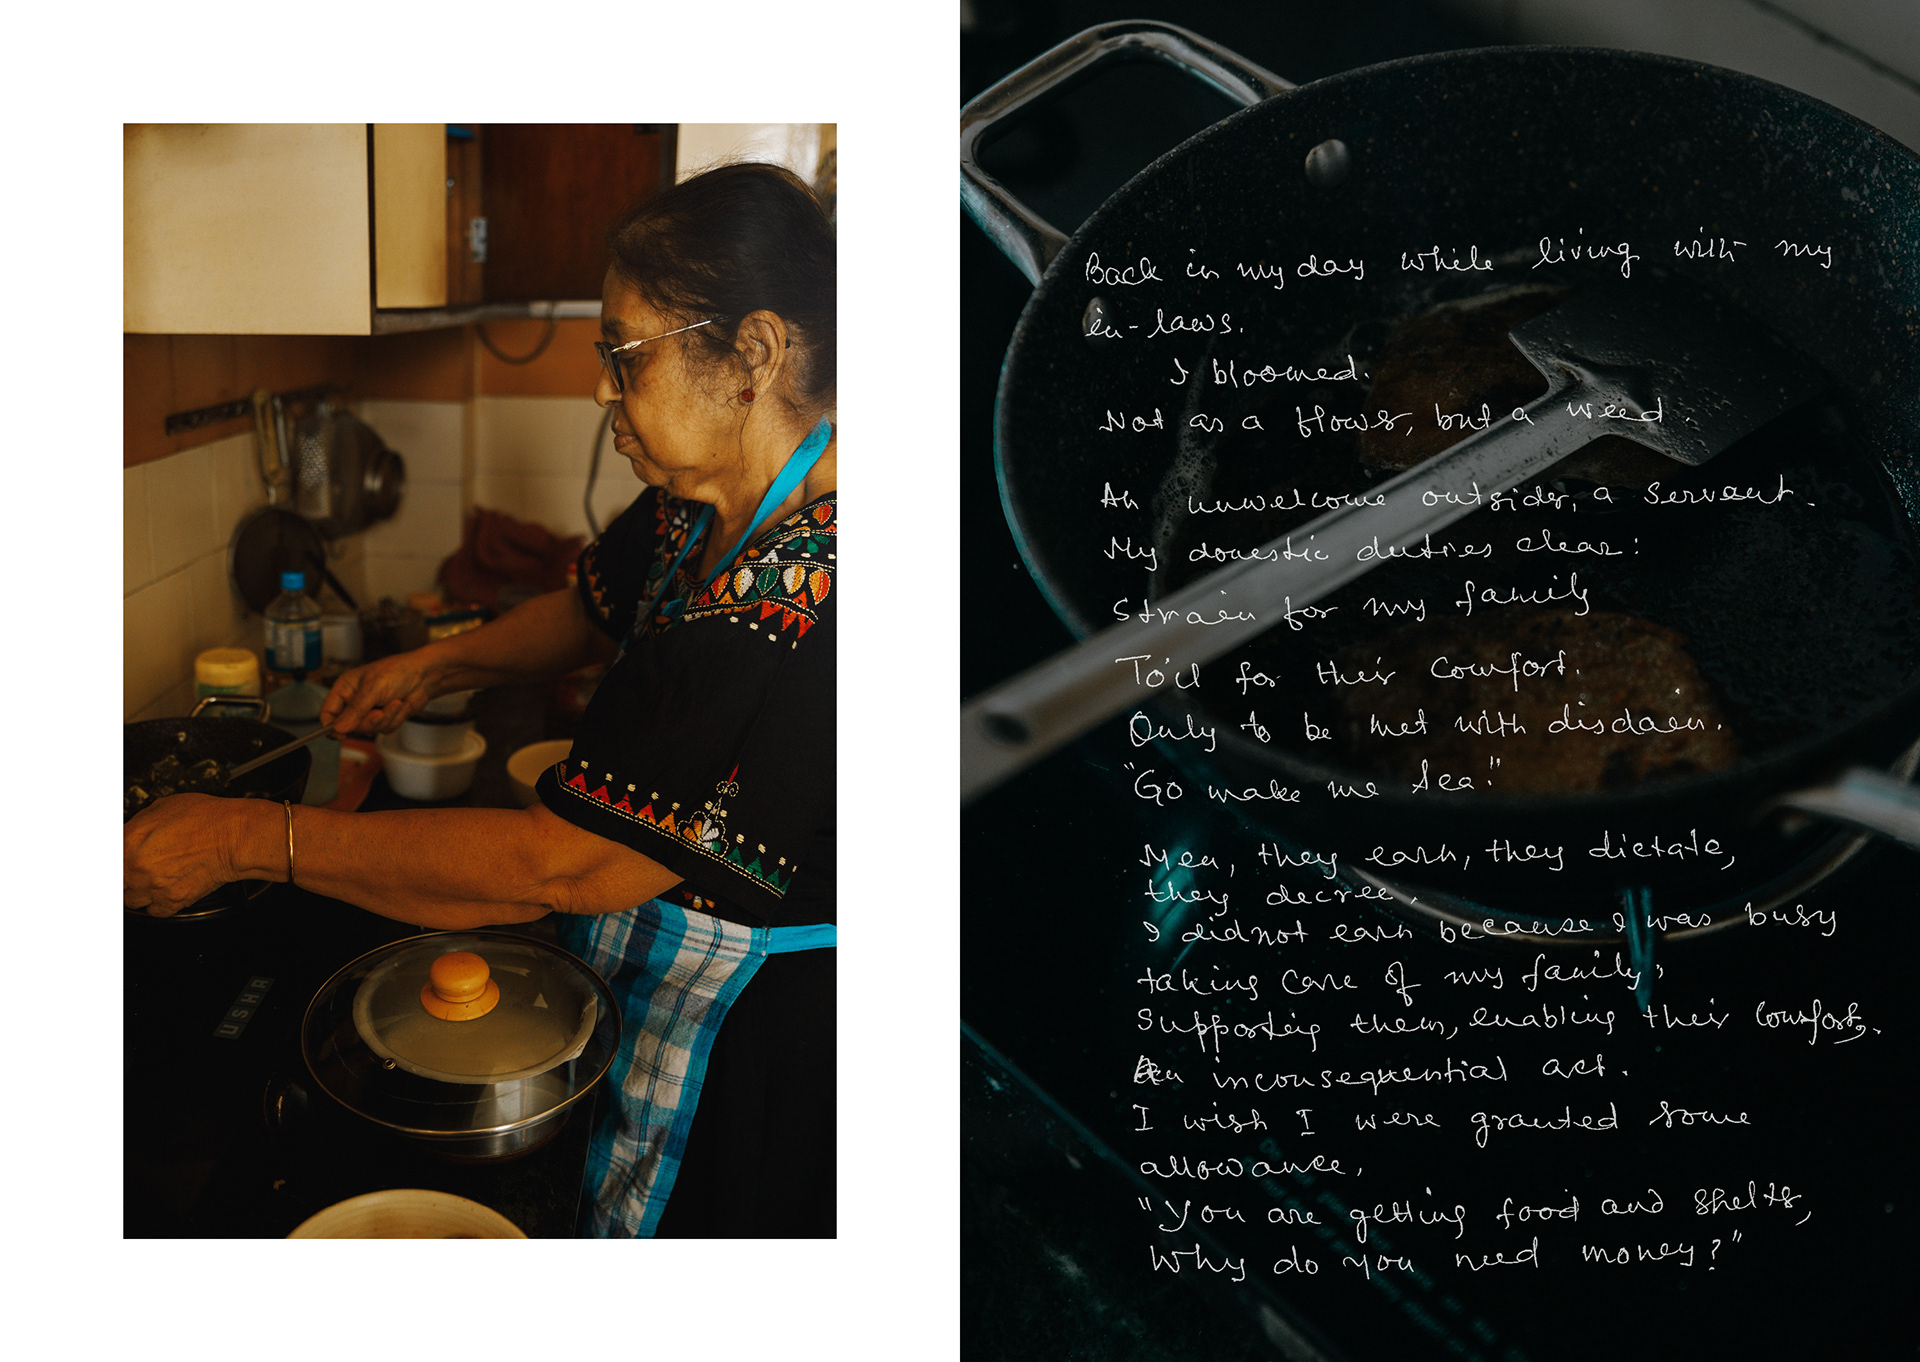 USHA
Back in my day while living with my
in-laws.
I bloomed.
Not as a flower, but a weed.
An unwelcome outsider, a servant.
My domestic duties clear:
Strain for my family
Toil for their comfort.
Only to be met with disdain.
"Go make me tea!"
Men, they earn, they dictate,
they decree.
I did not earn because I was busy
taking care of my family,
Supporting them, enabling their comfort.
An inconsequential act.
I wish I were granted some
allowance,
"You are getting food and shelter,
Why do you need money?"